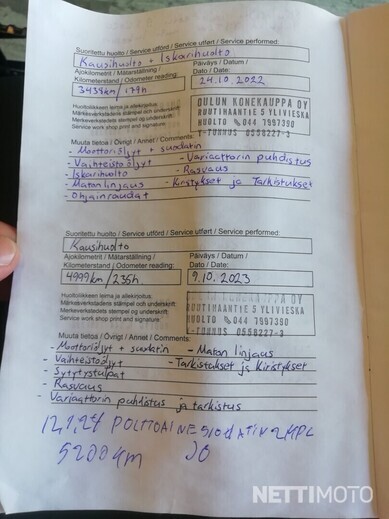 Suoritettu huolto / Service utförd / Service utført / Service performed:
Kausihuolto + Iskarihuolto
Ajokilometrit / Mätarställning /
Kilometerstand / Odometer reading:
Päiväys / Datum /
Dato / Date:
3439km / 179h
24.10.2022
Huoltoliikkeen leima ja allekirjoitus
Märkesverkstadens stämpel och underskrift
Merkeverkstedets stempel og underskrift
Service work shop print and signature
OULUN KONEKAUPPA OY
RUUTIHAANTIE 5 YLIVIESKA
HUOLTO 044 7997390
Y-TUNNUS 0558227-3
Muuta tietoa / Övrigt / Annet / Comments:
- Moottoriöljyt + suodatin
- Vaihteistoöljyt - Variaattorin puhdistus
- Iskarihuolto - Rasvaus
- Maton linjaus - Kiristykset ja Tarkistukset
- Ohjainraudat
Suoritettu huolto / Service utförd / Service utført / Service performed:
Kausihuolto
Ajokilometrit / Mätarställning /
Kilometerstand / Odometer reading:
Päiväys / Datum /
Dato / Date:
4999km / 235h
9.10.2023
Huoltoliikkeen leima ja allekirjoitus
Märkesverkstadens stämpel och underskrift
Merkeverkstedets stempel og underskrift
Service work shop print and signature
KONEKAUPPA OY
RUUTIHAANTIE 5 YLIVIESKA
HUOLTO 044 7997390
Y-TUNNUS 0558227-3
Muuta tietoa / Övrigt / Annet / Comments:
- Moottoriöljyt + suodatin - Maton linjaus
- Vaihteistoöljyt - Tarkistukset ja Kiristykset
- Sytytystulpat
- Rasvaus
- Variaattorin puhdistus ja tarkistus
12,1,24 POLTTOAINESUODATIN 2KPL
5200km JO
NETTIMOTO